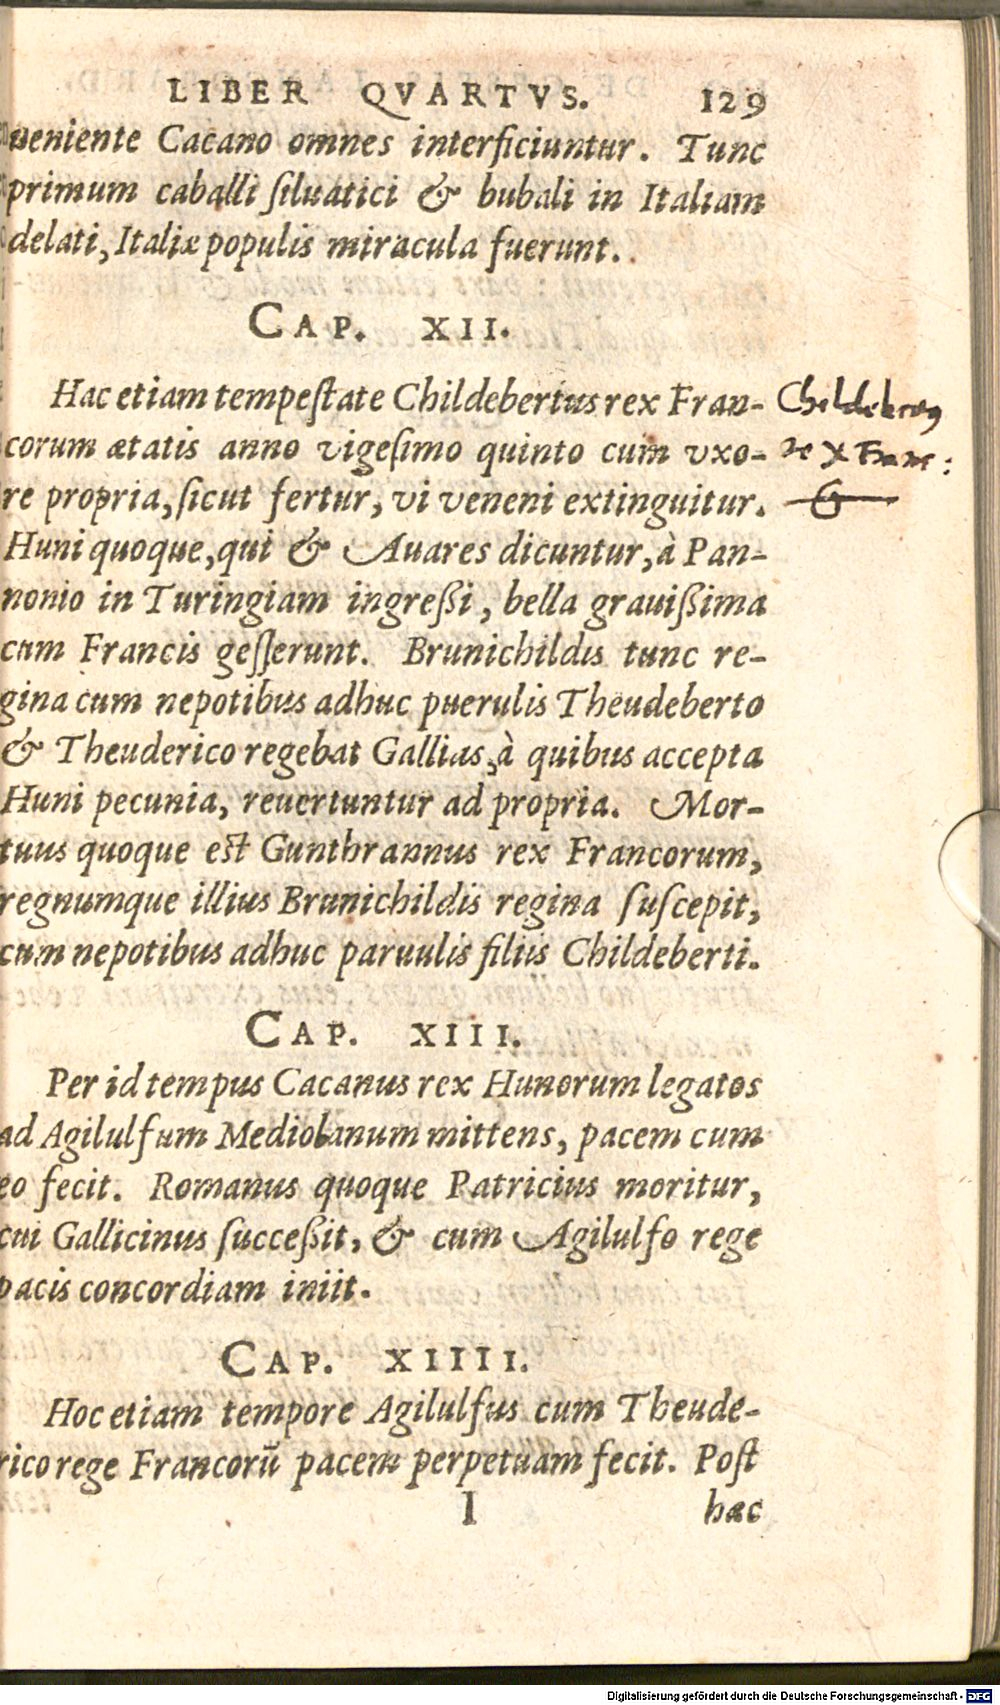 LIBER QVARTVS. 129
ueniente Cacano omnes interficiuntur. Tunc
primum caballi siluatici & bubali in Italiam
delati, Italiæ populis miracula fuerunt.
CAP. XII.
Hac etiam tempestate Childebertus rex Fran-
corum ætatis anno vigesimo quinto cum vxo-
re propria, sicut fertur, vi veneni extinguitur.
Huni quoque, qui & Auares dicuntur, à Pan-
nonio in Turingiam ingreßi, bella grauißima
cum Francis gesserunt. Brunichildis tunc re-
gina cum nepotibus adhuc puerulis Theudeberto
& Theuderico regebat Gallias, à quibus accepta
Huni pecunia, reuertuntur ad propria. Mor-
tuus quoque est Gunthrannus rex Francorum,
regnumque illius Brunichildis regina suscepit,
cum nepotibus adhuc paruulis filiis Childeberti.
Childebertus
rex Franc:
&
CAP. XIII.
Per id tempus Cacanus rex Hunorum legatos
ad Agilulfum Mediolanum mittens, pacem cum
eo fecit. Romanus quoque Patricius moritur,
cui Gallicinus succeßit, & cum Agilulfo rege
pacis concordiam iniit.
CAP. XIIII.
Hoc etiam tempore Agilulfus cum Theude-
rico rege Francorū pacem perpetuam fecit. Post
I hæc
Digitalisierung gefördert durch die Deutsche Forschungsgemeinschaft - DFG